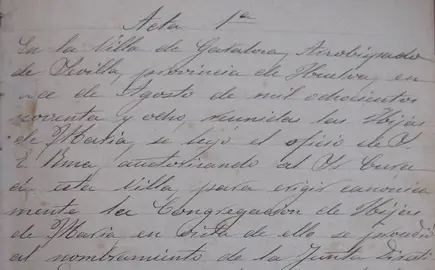 Acta 1ª
En la Villa de Galaroza, Arzobispado
de Sevilla, provincia de Huelva, en
ce de Agosto de mil ochocientos
noventa y ocho, reunidas las Hijas
de Maria, se leyó el oficio de S.
E. Rma, autorizando al Sr Cura
de esta Villa, para erigir canonica
mente la Congregación de Hijas
de Maria en vista de ello se procedió
al nombramiento de la Junta Directi